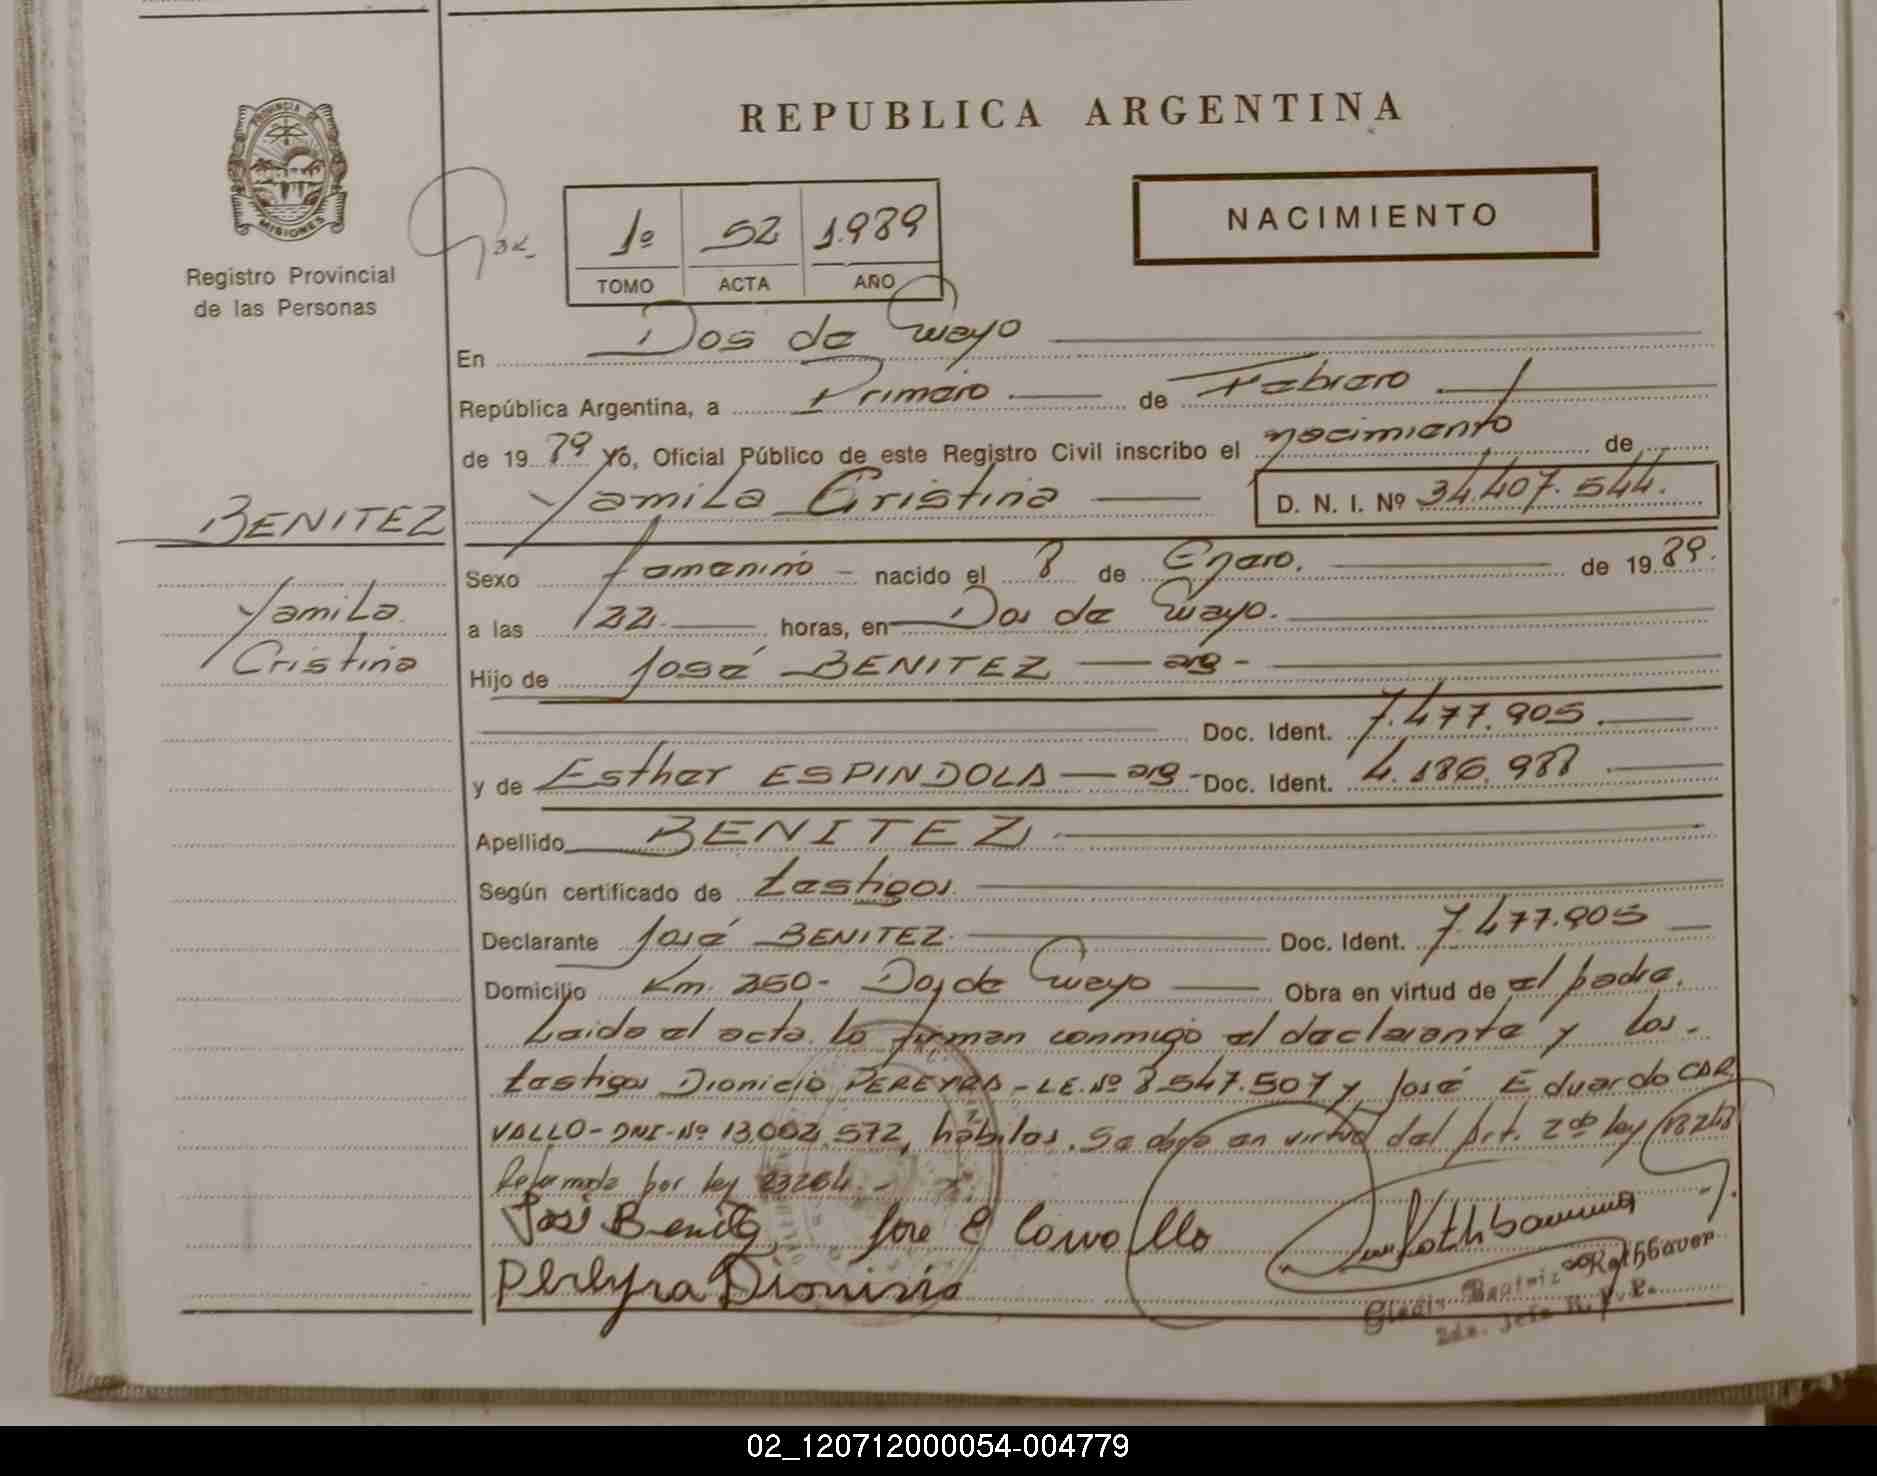 REPUBLICA ARGENTINA
PROVINCIA DE
MISIONES
Registro Provincial
de las Personas
NACIMIENTO
1º 52 1.989
TOMO ACTA AÑO
En Dos de Mayo
República Argentina, a Primero de Febrero
de 19 89 Yo, Oficial Público de este Registro Civil inscribo el nacimiento de
Yamila Cristina D. N. I. Nº 34.407.544.
BENITEZ
Yamila
Cristina
Sexo femenino - nacido el 8 de Enero. de 19 89.
a las 22 horas, en Dos de Mayo.
Hijo de José BENITEZ — arg -
Doc. Ident. 7.477.905.
y de Esther ESPINDOLA — arg - Doc. Ident. 4.186.988
Apellido BENITEZ
Según certificado de testigos.
Declarante José BENITEZ. Doc. Ident. 7.477.905
Domicilio Km. 250 - Dos de Mayo Obra en virtud de el padre.
Leida el acta lo firman conmigo el declarante y los
testigos Dionicio PEREYRA - LE. Nº 8.547.507 y José Eduardo CAR
VALLO - DNI - Nº 13.002.572, hábiles. Se obra en virtud del Art. 2do ley 18248
Reformada por ley 23264. -
José Benitez José E Carvallo
Pereyra Dionisio
Rothbauer
Gladis Beatriz Rothbauer
2da. Jefe R. P. P.
02_120712000054-004779